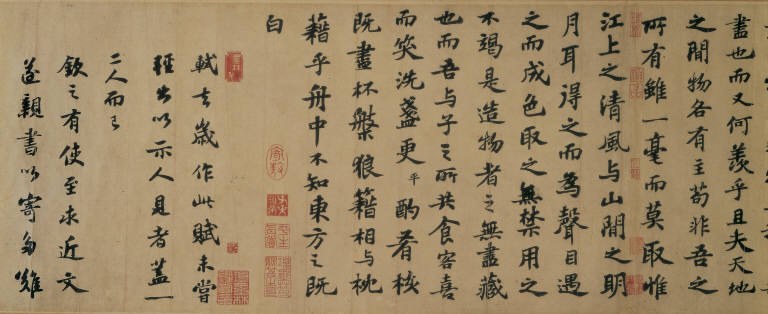 盡也而又何羨乎且夫天地
之間物各有主苟非吾之
所有雖一毫而莫取惟
江上之清風与山間之明
月耳得之而為聲目遇
之而成色取之無禁用之
不竭是造物者之無盡藏
也而吾与子之所共食客喜
而笑洗盞更平酌肴核
既盡杯槃狼籍相与枕
藉乎舟中不知東方之既
白
軾去歲作此賦未嘗
輕出以示人見者蓋一
二人而已
欽之有使至求近文
遂親書以寄多難